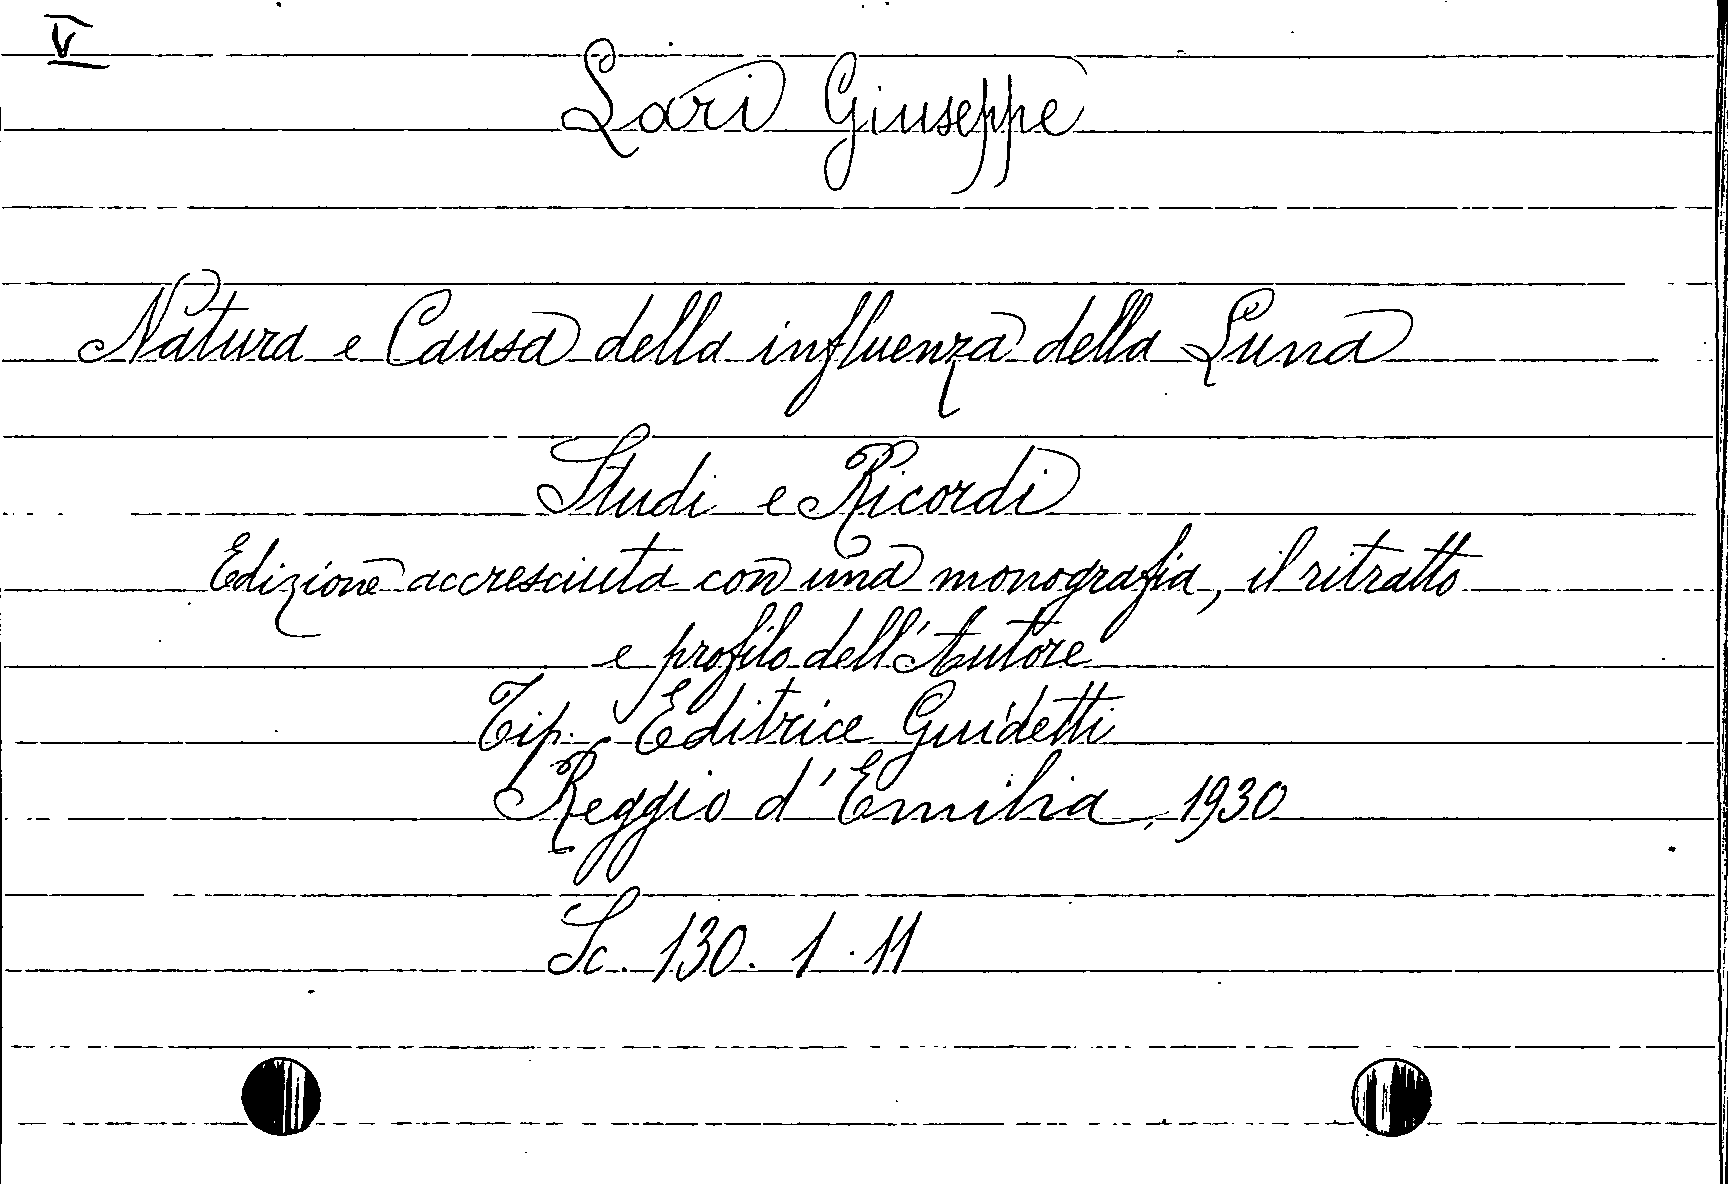 V
Lari Giuseppe
Natura e Causa della influenza della Luna
Studi e Ricordi
Edizione accresciuta con una monografia, il ritratto
e profilo dell'Autore
Tip. Editrice Guidetti
Reggio d'Emilia, 1930
Sc. 130. 1. 11